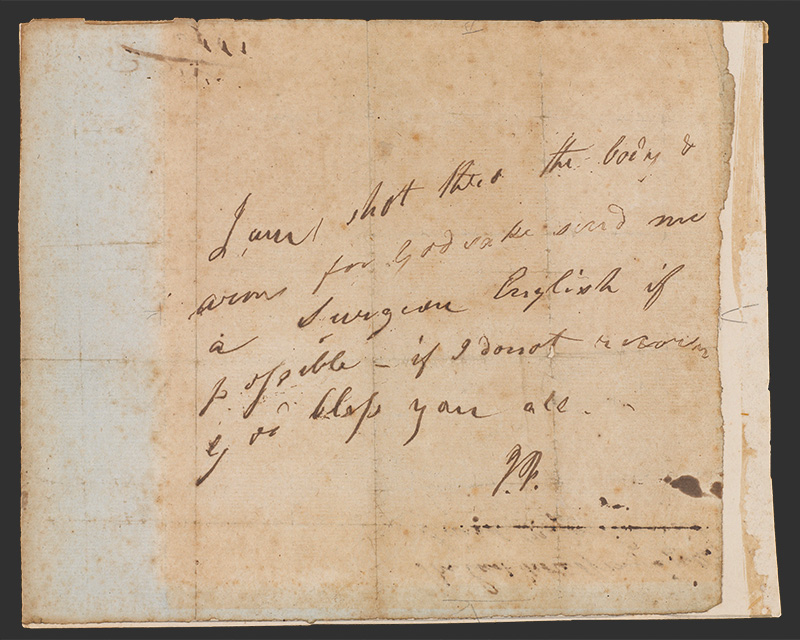 I am shot thro the body &
arms for God sake send me
a Surgeon English if
possible – if I donot recover
God bless you all.
J.P.